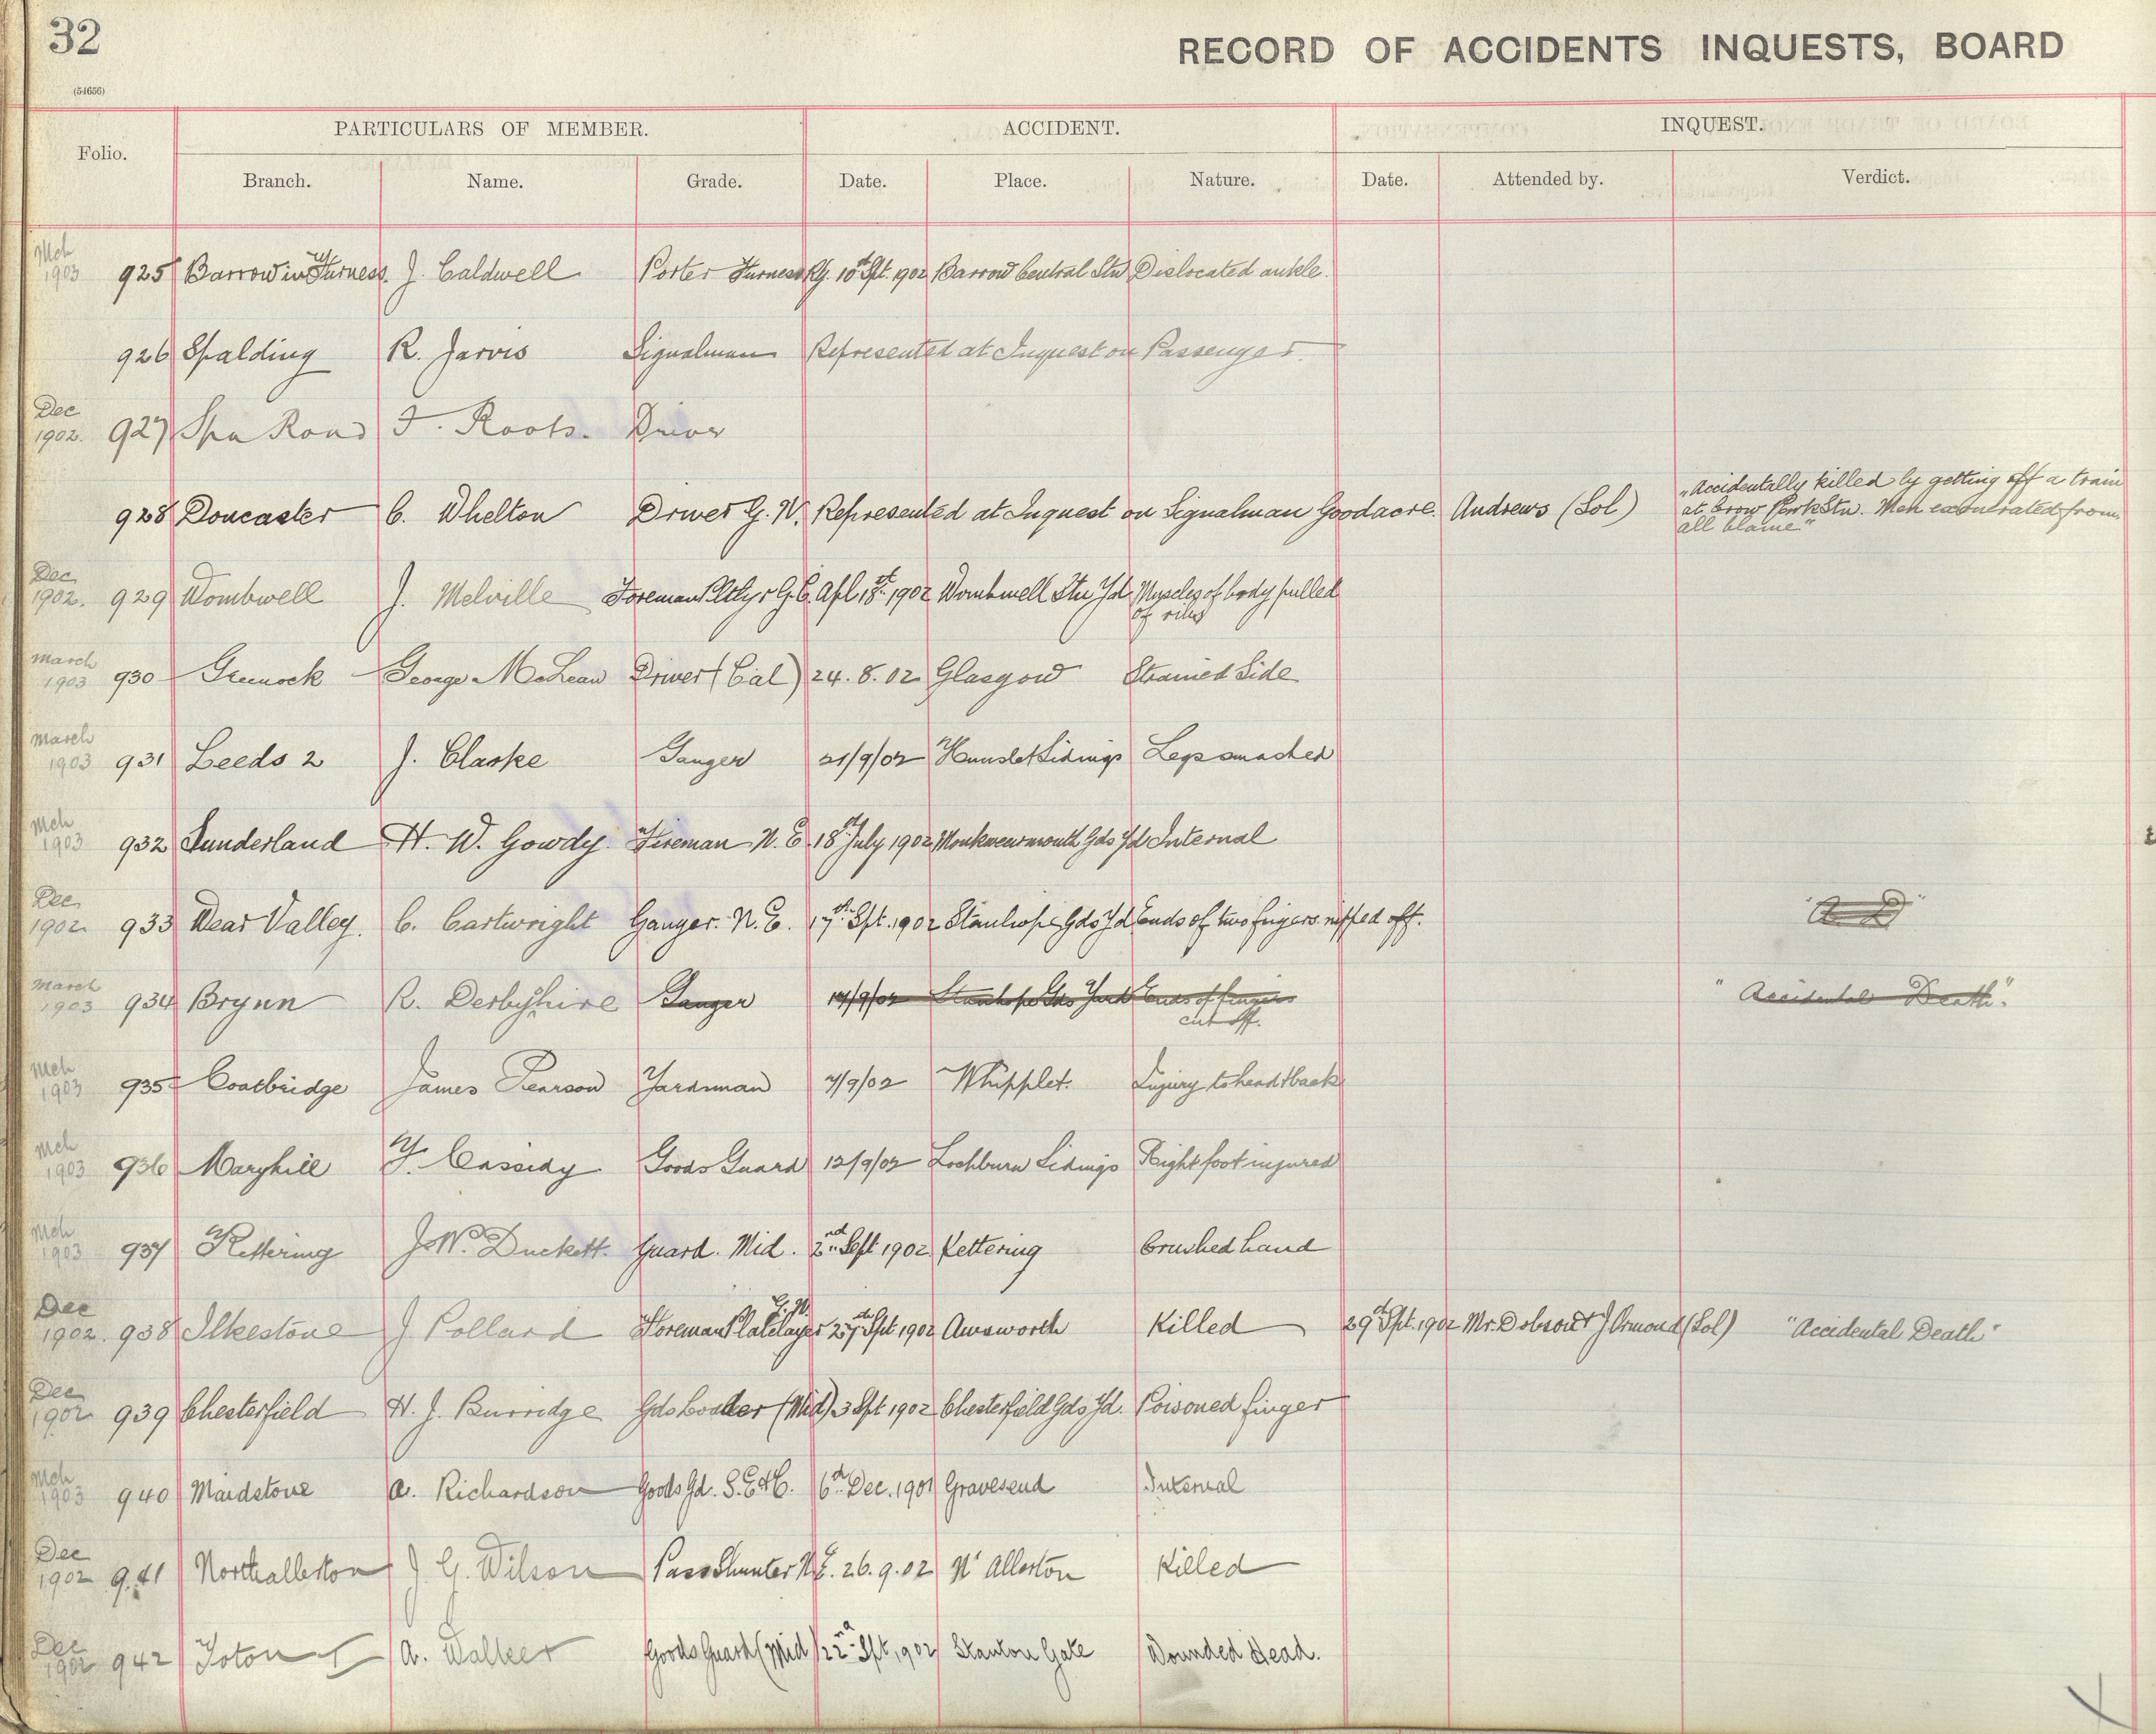 32
RECORD OF ACCIDENTS INQUESTS, BOARD
(54656)
PARTICULARS OF MEMBER. ACCIDENT. INQUEST.
Folio. Branch. Name. Grade. Date. Place. Nature. Date. Attended by. Verdict.
Mch
1903 925 Barrow in Furness. J. Caldwell Porter Furness Ry. 10th Spt. 1902 Barrow Central Stn Dislocated ankle.
926 Spalding R. Jarvis Signalman Represented at Inquest on Passenger.
Dec
1902. 927 Spa Road F. Roots. Driver
928 Doncaster C. Whelton Driver G. N. Represented at Inquest on Signalman Goodacre. Andrews (Sol) "Accidentally killed by getting off a train
at Crow Park Stn. Men exonerated from
all blame"
Dec
1902. 929 Wombwell J. Melville Foreman Pltlyr G.C. Apl 18th 1902 Wombwell Stn Yd. Muscles of body pulled
of ribs
March
1903 930 Greenock George McLean Driver (Cal) 24. 8. 02 Glasgow Strained Side
March
1903 931 Leeds 2 J. Clarke Ganger 21/9/02 Hunslet Sidings Leg smashed
Mch
1903 932 Sunderland H. W. Gowdy. Fireman N. E 18th July 1902 Monkwearmouth Gds Yd Internal
Dec
1902. 933 Wear Valley. C. Cartwright Ganger. N. E. 17th Spt. 1902 Stanhope Gds Yd Ends of two fingers nipped off.
March
1903 934 Brynn R. Derbyshire Ganger 17/9/02 Stanhope Gds Yard Ends of fingers "Accidental Death".
cut off.
Mch
1903 935 Coatbridge James Pearson Yardsman 7/9/02 Whifflet. Injury to head & back
Mch
1903 936 Maryhill F. Cassidy Goods Guard 12/9/02 Lochburn Sidings Right foot injured
Mch
1903 937 Kettering J. W. Duckett. Guard. Mid. 2nd Sept 1902 Kettering Crushed hand
Dec
1902. 938 Ilkestone J Pollard Foreman Platelayer G. N. 27th Spt 1902 Awsworth Killed 29th Spt. 1902 Mr. Dobson & J Ormond (Sol) "Accidental Death"
Dec
1902 939 Chesterfield H. J. Burridge Gds Loader (Mid) 3 Spt 1902 Chesterfield Gds Yd. Poisoned finger
Mch
1903 940 Maidstone A. Richardson Goods Gd. S. E & C. 6th Dec. 1901 Gravesend Internal
Dec
1902 941 Northallerton J G. Wilson Pass Shunter N E. 26. 9. 02 Nt Allerton Killed
Dec
1902 942 Toton A. Walker Goods Guard (Mid) 22nd Spt, 1902 Stanton Gate Wounded Head.